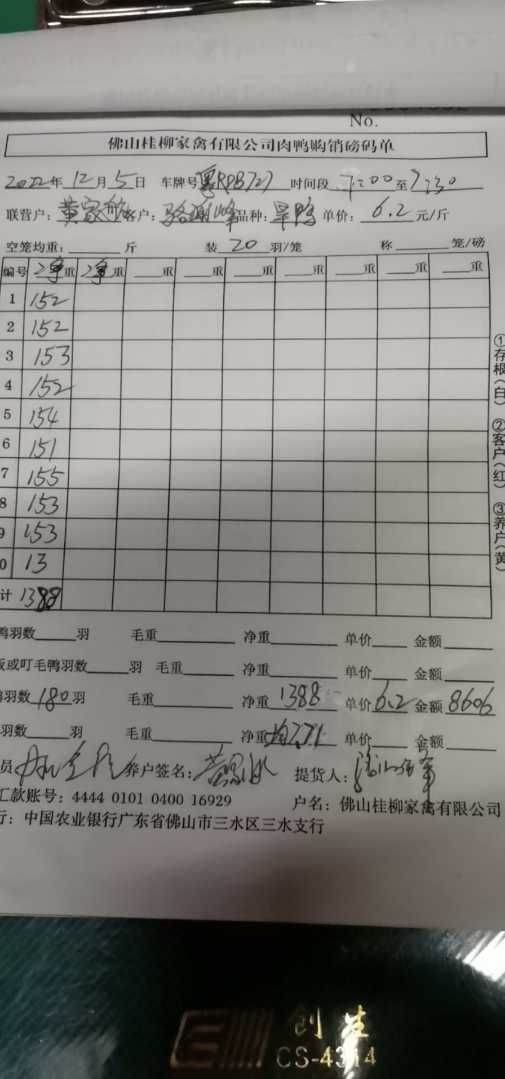 No.
佛山桂柳家禽有限公司肉鸭购销磅码单
2022年12月5日 车牌号粤RPB727 时间段7:00至7:30
联营户:黄家 客户:骆 峰 品种:旱鸭 单价:6.2元/斤
空笼均重:____斤 装20羽/笼 称____笼/磅
编号 净重 净重 __重 __重 __重 __重 __重 __重 __重
1 152
2 152
3 153
4 152
5 154
6 151
7 155
8 153
9 153
0 13
计 1388
鸭羽数____羽 毛重____ 净重____ 单价____ 金额____
或叮毛鸭羽数____羽 毛重____ 净重____ 单价____ 金额____
羽数180羽 毛重____ 净重1388 单价6.2 金额8606
羽数____羽 毛重____ 净重均7.71 单价____ 金额____
员 养户签名: 提货人:
汇款账号:4444 0101 0400 16929 户名:佛山桂柳家禽有限公司
行:中国农业银行广东省佛山市三水区三水支行
①存根(白) ②客户(红) ③养户(黄)
创生
CS-4314